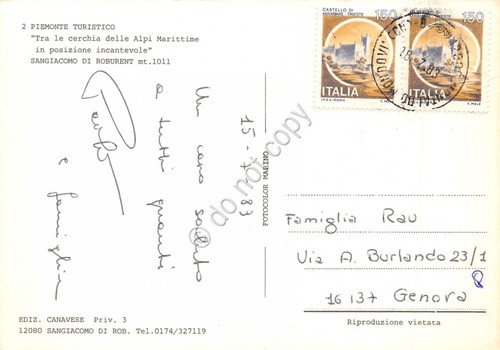 2 PIEMONTE TURISTICO
"Tra le cerchia delle Alpi Marittime
in posizione incantevole"
SANGIACOMO DI ROBURENT mt.1011
15-7-83
Un caro saluto
a tutti quanti
Paolo
e famiglia
EDIZ. CANAVESE Priv. 3
12080 SANGIACOMO DI ROB. Tel.0174/327119
FOTOCOLOR MARINO
CASTELLO DI
MIRAMARE - TRIESTE
150
ITALIA
I.P.Z.S. ROMA
150
ITALIA
18-7-83
MONDOVI'
Famiglia Rau
Via A. Burlando 23/1
8
16137 Genova
Riproduzione vietata
do not copy